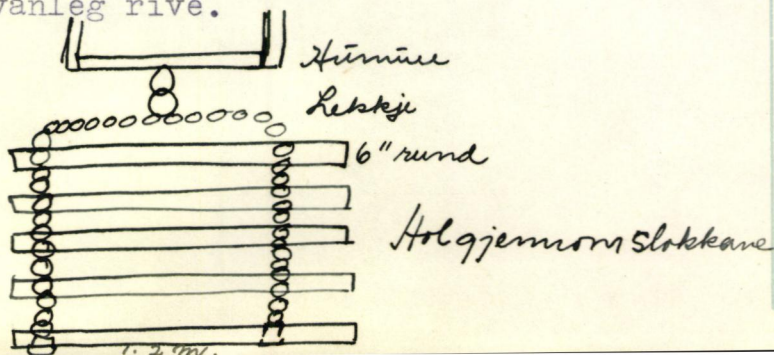 vanleg rive.
Lekkje
6" rund
Hol gjennom stokkane